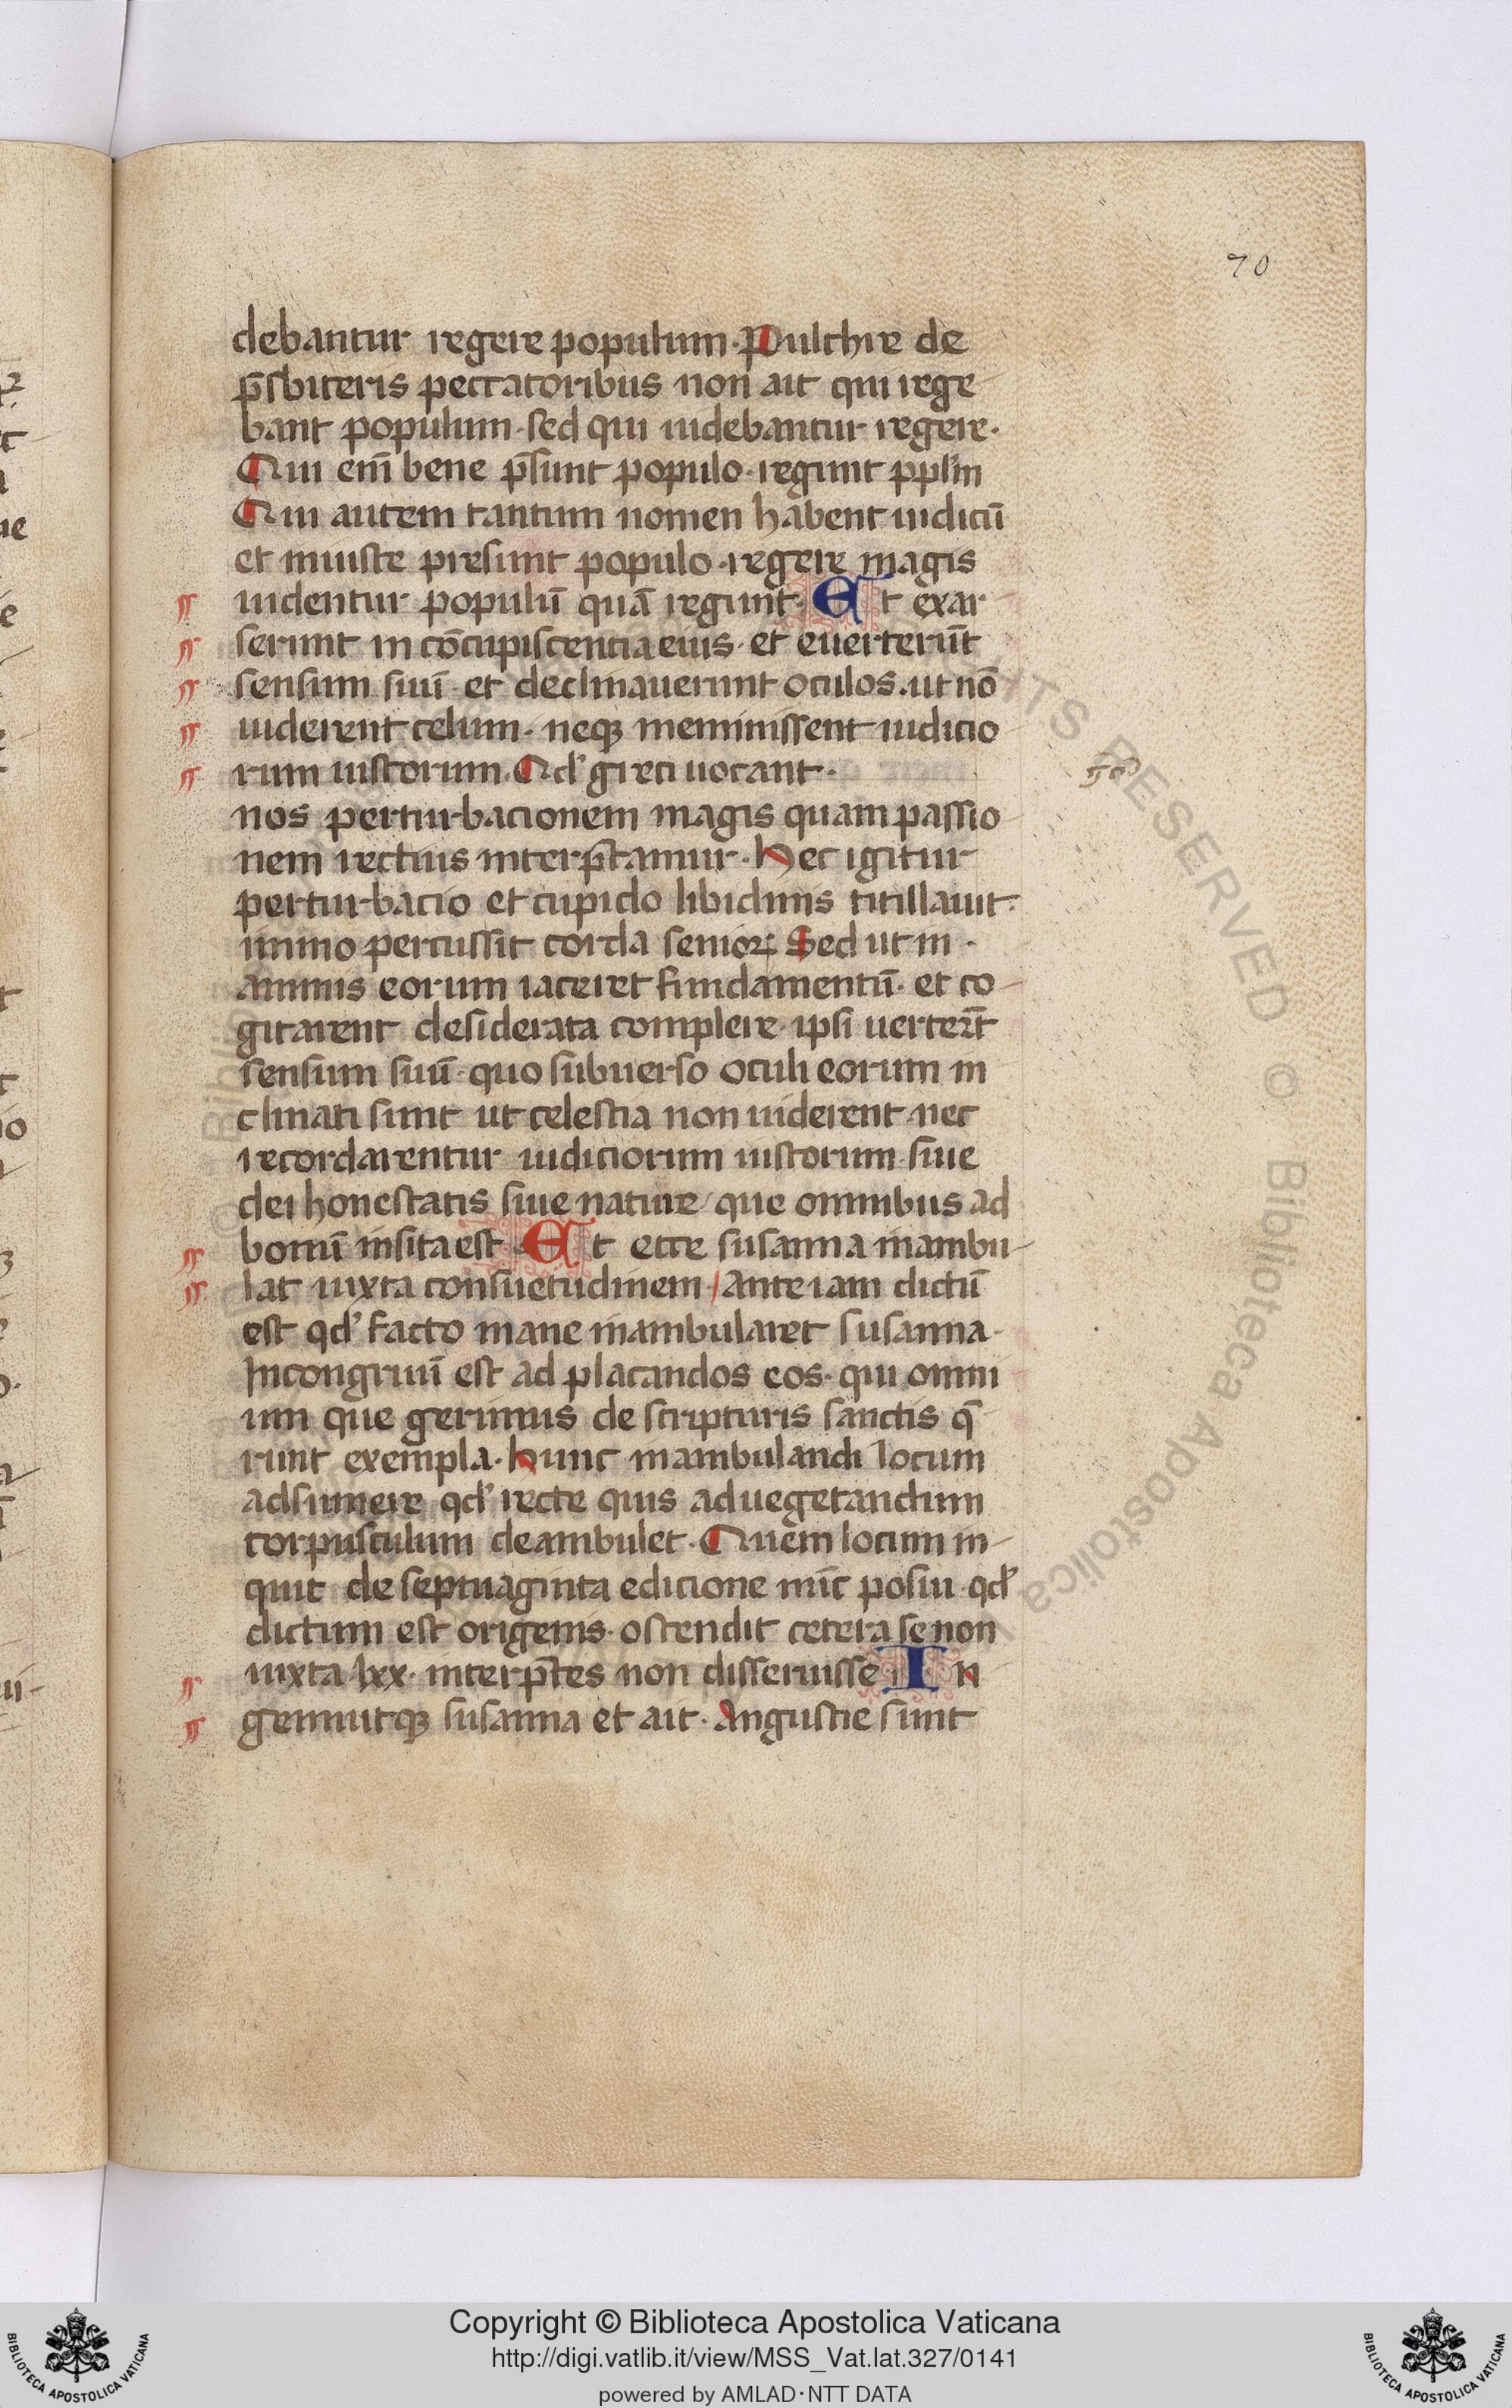 70
debantur regere populum. Pulchre de
p̄sbiteris peccatoribus non ait qui rege
bant populum. sed qui uidebantur regere.
Qui eni̅ bene p̄sunt populo. regunt ppl̅m
Qui autem tantum nomen habent iudicu̅
et iniuste presunt populo. regere magis
uidentur populu̅ qua̅ regunt. Et exar
serunt in co̅cupiscentia eius. et euerteru̅t
sensum suu̅. et declinauerunt oculos. ut no̅
uiderent celum. neqꝫ meminissent iudicio
rum iustorum. Qd' greci uocant.
nos perturbacionem magis quam passio
nem rectius interp̄tamur. Hec igitur
perturbacio et cupido libidinis titillauit.
immo percussit corda senioꝝ. Sed ut in.
animis eorum iaceret fundamentu̅. et co
gitarent desiderata complere. ipsi uerter̅t
sensum suu̅. quo subuerso oculi eorum in
clinati sunt ut celestia non uiderent. nec
recordarentur iudiciorum iustorum. siue
dei honestatis siue nature. que omnibus ad
bonu̅ insita est. Et ecce susanna inambu
lat iuxta consuetudinem / Ante iam dictu̅
est qd' facto mane inambularet susanna.
Incongruu̅ est ad placandos eos. qui omni
um que gerimus de scripturis sanctis q̄
runt exempla. hunc inambulandi locum
adsumere qd' recte quis ad uegetandum
corpusculum deambulet. Quem locum in
quit de septuaginta edicione nu̅c posui. qd'
dictum est origenis. ostendit cetera se non
iuxta lxx. interp̄tes non disseruisse. In
gemuitqꝫ susanna et ait. Angustie sunt
© Biblioteca Apostolica
Copyright © Biblioteca Apostolica Vaticana
http://digi.vatlib.it/view/MSS_Vat.lat.327/0141
powered by AMLAD·NTT DATA
BIBLIOTECA APOSTOLICA VATICANA
BIBLIOTECA APOSTOLICA VATICANA